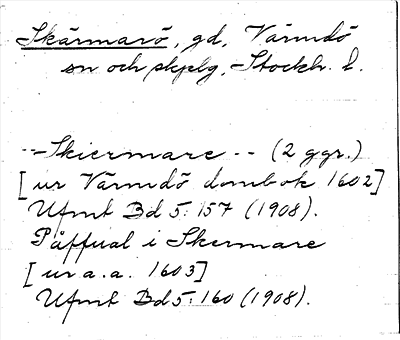 Skärmarö, gd, Värmdö
sn och skplg, Stockh. l.
-- Skiermare -- (2 ggr.)
[ur Värmdö dombok 1602]
Ufmt Bd 5: 157 (1908).
Påffual i Skermare
[ur a.a. 1603]
Ufmt Bd 5: 160 (1908).